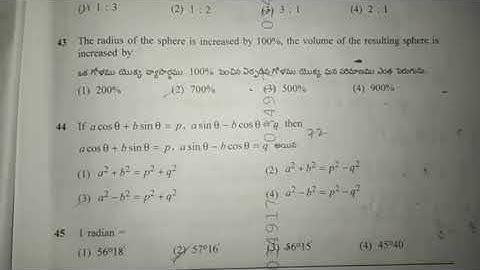 (1) 1 : 3 (2) 1 : 2 (3) 3 : 1 (4) 2 : 1
43 The radius of the sphere is increased by 100%, the volume of the resulting sphere is
increased by
ఒక గోళము యొక్క వ్యాసార్థము 100% పెంచిన ఏర్పడిన గోళము యొక్క ఘన పరిమాణము ఎంత పెరుగును.
(1) 200% (2) 700% (3) 500% (4) 900%
44 If a cos θ + b sin θ = p, a sin θ − b cos θ = q then
a cos θ + b sin θ = p, a sin θ − b cos θ = q అయిన
(1) a² + b² = p² + q² (2) a² + b² = p² − q²
(3) a² − b² = p² + q² (4) a² − b² = p² − q²
45 1 radian =
(1) 56°18′ (2) 57°16′ (3) 56°15′ (4) 45°40′